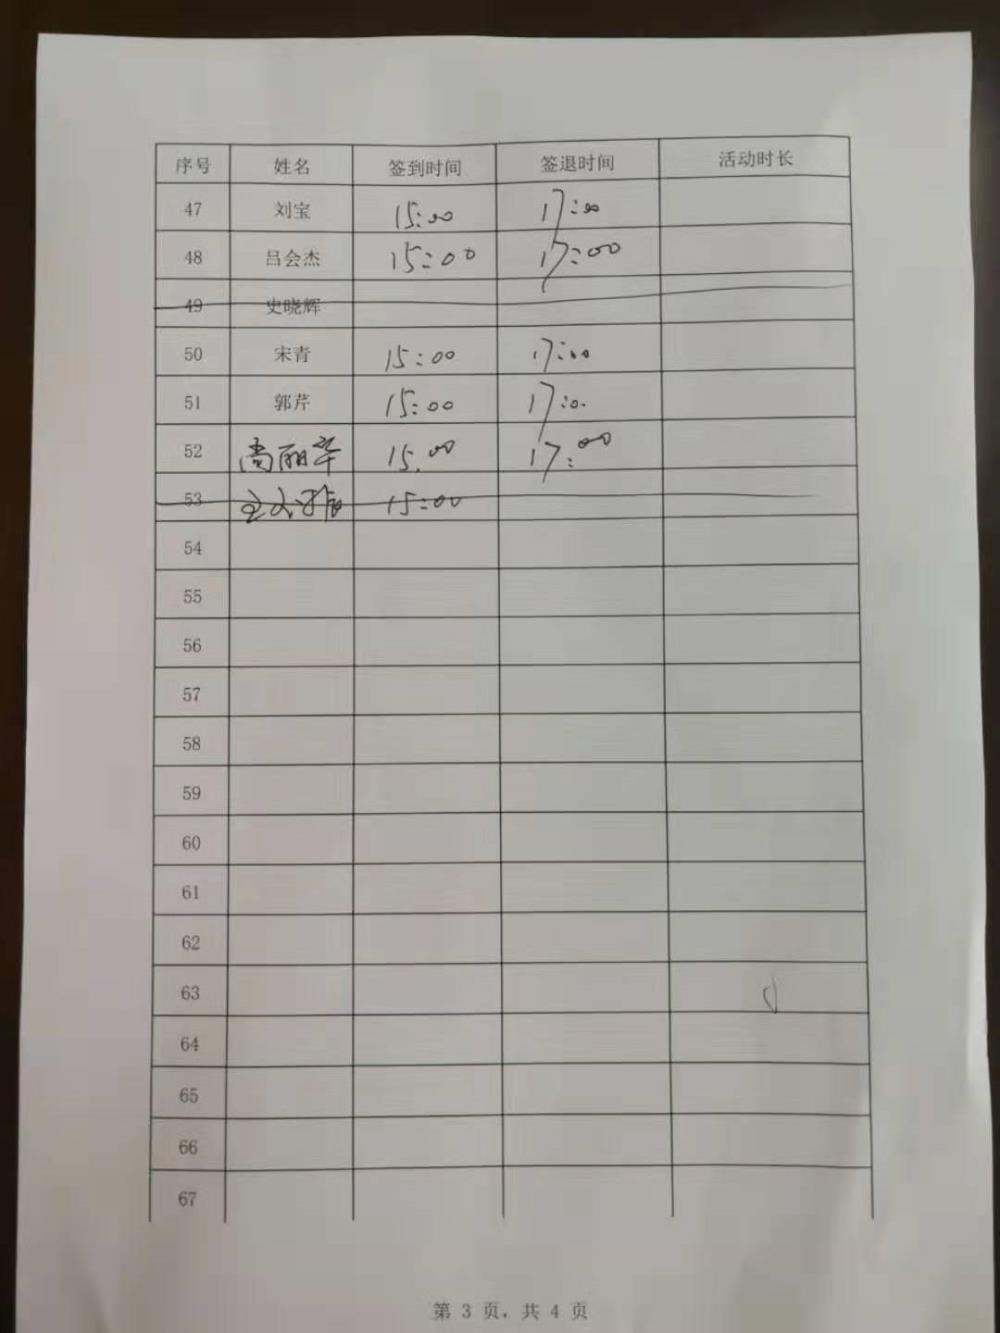 序号 姓名 签到时间 签退时间 活动时长
47 刘宝 15:00 17:00
48 吕会杰 15:00 17:00
49 史晓辉
50 宋青 15:00 17:00
51 郭芹 15:00 17:0.
52 尚丽华 15.00 17:00
53 15:00
54
55
56
57
58
59
60
61
62
63
64
65
66
67
第 3 页，共 4 页